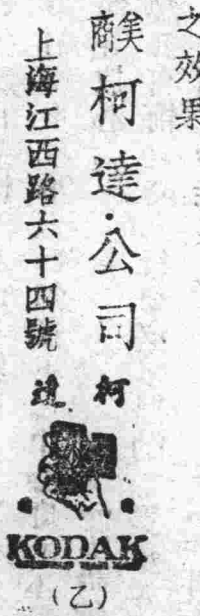 之效果
美商柯達·公司
上海江西路六十四號
柯達
KODAK
(乙)